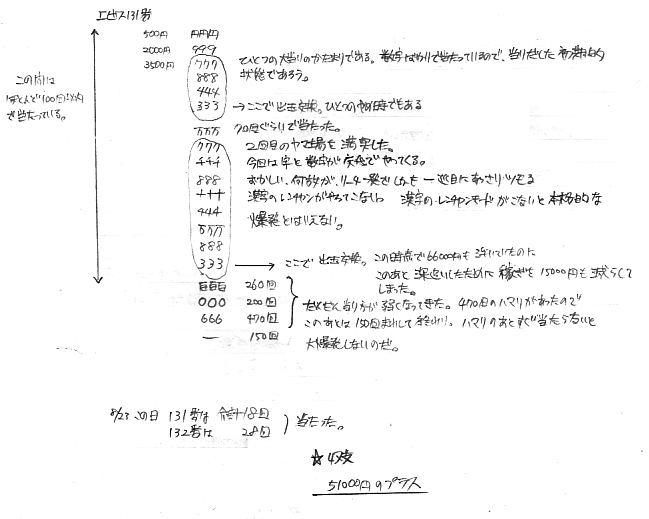 エビス131番
500円 円円円
2000円 999
3500円 777
888
444
333
ひとつの大当りのかたまりである。数字ばかりで当たっているので、当りだした初期的
状態であろう。
→ここで出玉交換。ひとつのヤマ場でもある
この間は
ほとんど100回以内
で当たっている。
万万万 70回ぐらいで当たった。
777 2回目のヤマ場を満喫した。
444 今回は字と数字が交互でやってくる。
888 おかしい、何故か、リーチ一発でしかも一巡目にあっさりツモる
十十十 漢字のレンチャンがやってこない。漢字のレンチャンモードがこないと本格的な
444 爆発とはいえない。
万万万
888
333 → ここで出玉交換。この時点で66000円も浮いていたのに
このあと深追いしたために稼ぎを15000円も減らして
しまった。
百百百 260回
000 200回
666 470回
― 150回
だんだん当り方が弱くなってきた。470回のハマリがあったので
このあとは150回まわして終わり。ハマリのあとすぐ当たらないと
大爆発しないのだ。
8/23 この日 131番は 合計18回
132番は 28回
当たった。
☆4勝
51000円のプラス